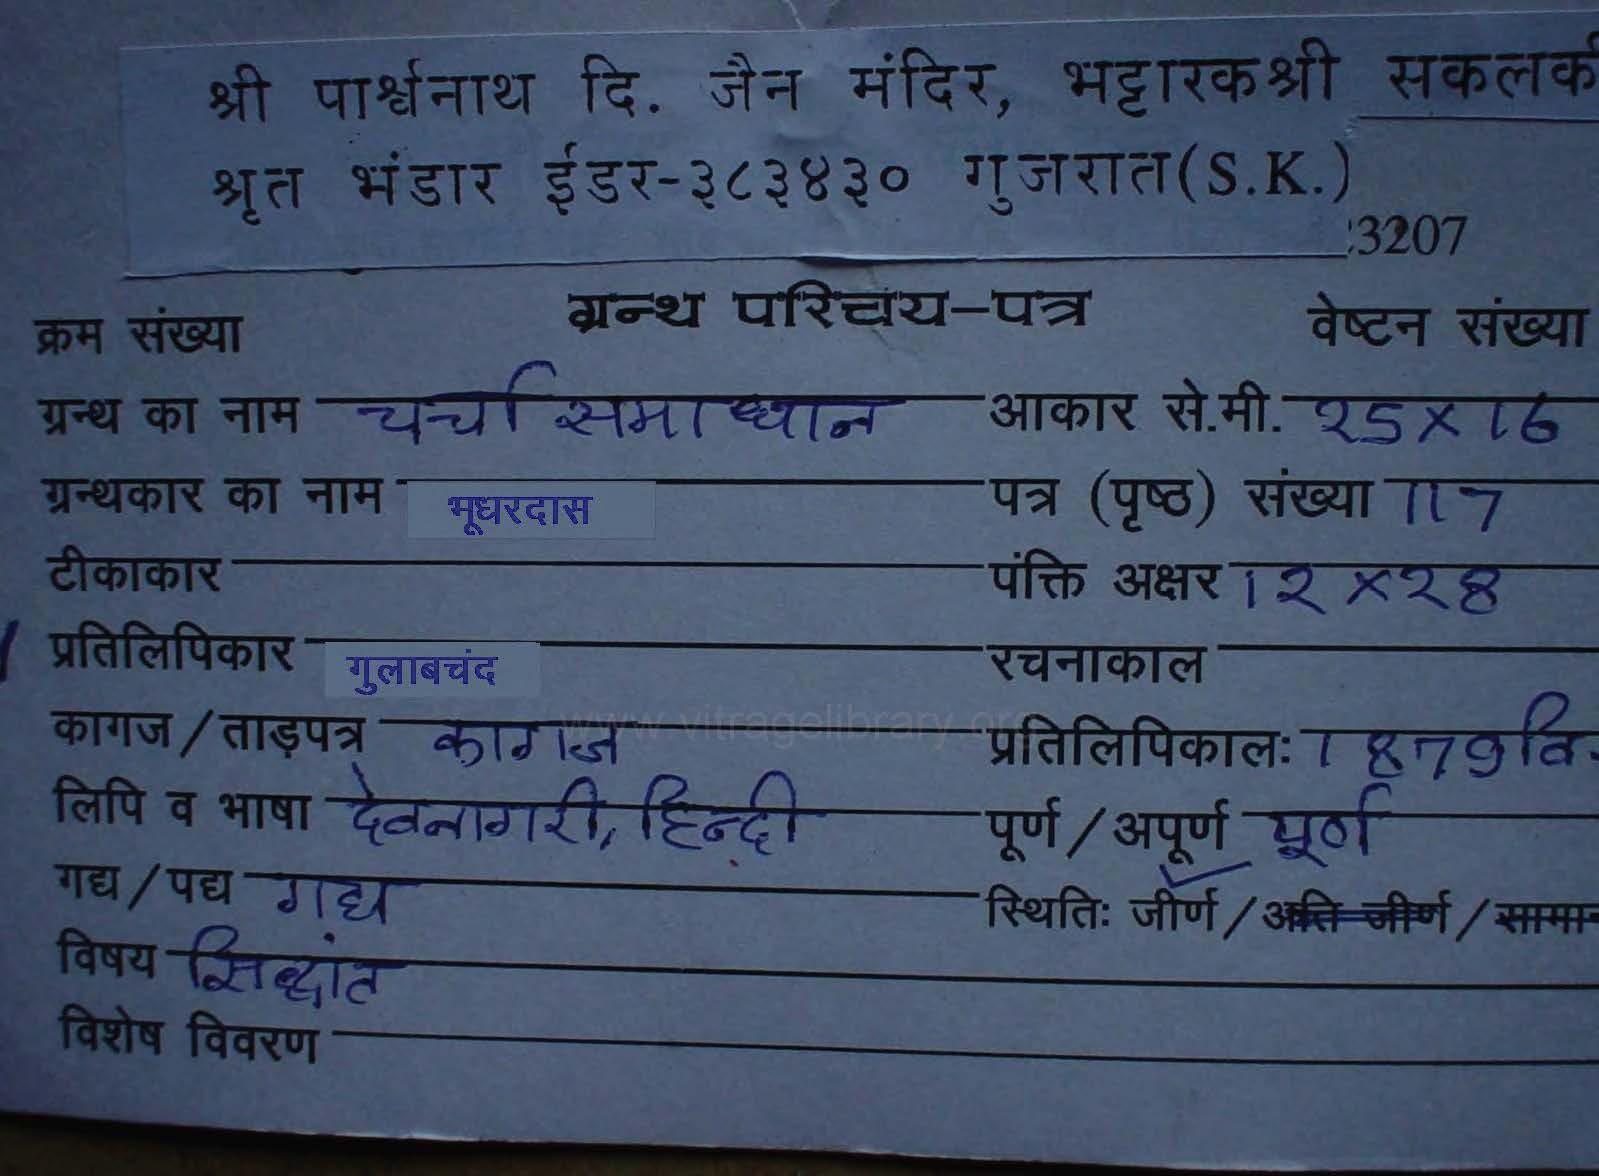 श्री पार्श्वनाथ दि. जैन मंदिर, भट्टारकश्री सकलकी
श्रृत भंडार ईडर-३८३४३० गुजरात(S.K.)
:3207
ग्रन्थ परिचय-पत्र
क्रम संख्या वेष्टन संख्या
ग्रन्थ का नाम चर्चा समाधान आकार से.मी. 25 x 16
ग्रन्थकार का नाम भूधरदास पत्र (पृष्ठ) संख्या 117
टीकाकार पंक्ति अक्षर 12 x 28
प्रतिलिपिकार गुलाबचंद रचनाकाल
कागज/ताड़पत्र कागज प्रतिलिपिकालः 1879 वि.
www.vitragelibrary.org
लिपि व भाषा देवनागरी, हिन्दी पूर्ण/अपूर्ण पूर्ण
गद्य/पद्य गद्य स्थितिः जीर्ण/अति जीर्ण/सामान
विषय सिद्धांत
विशेष विवरण